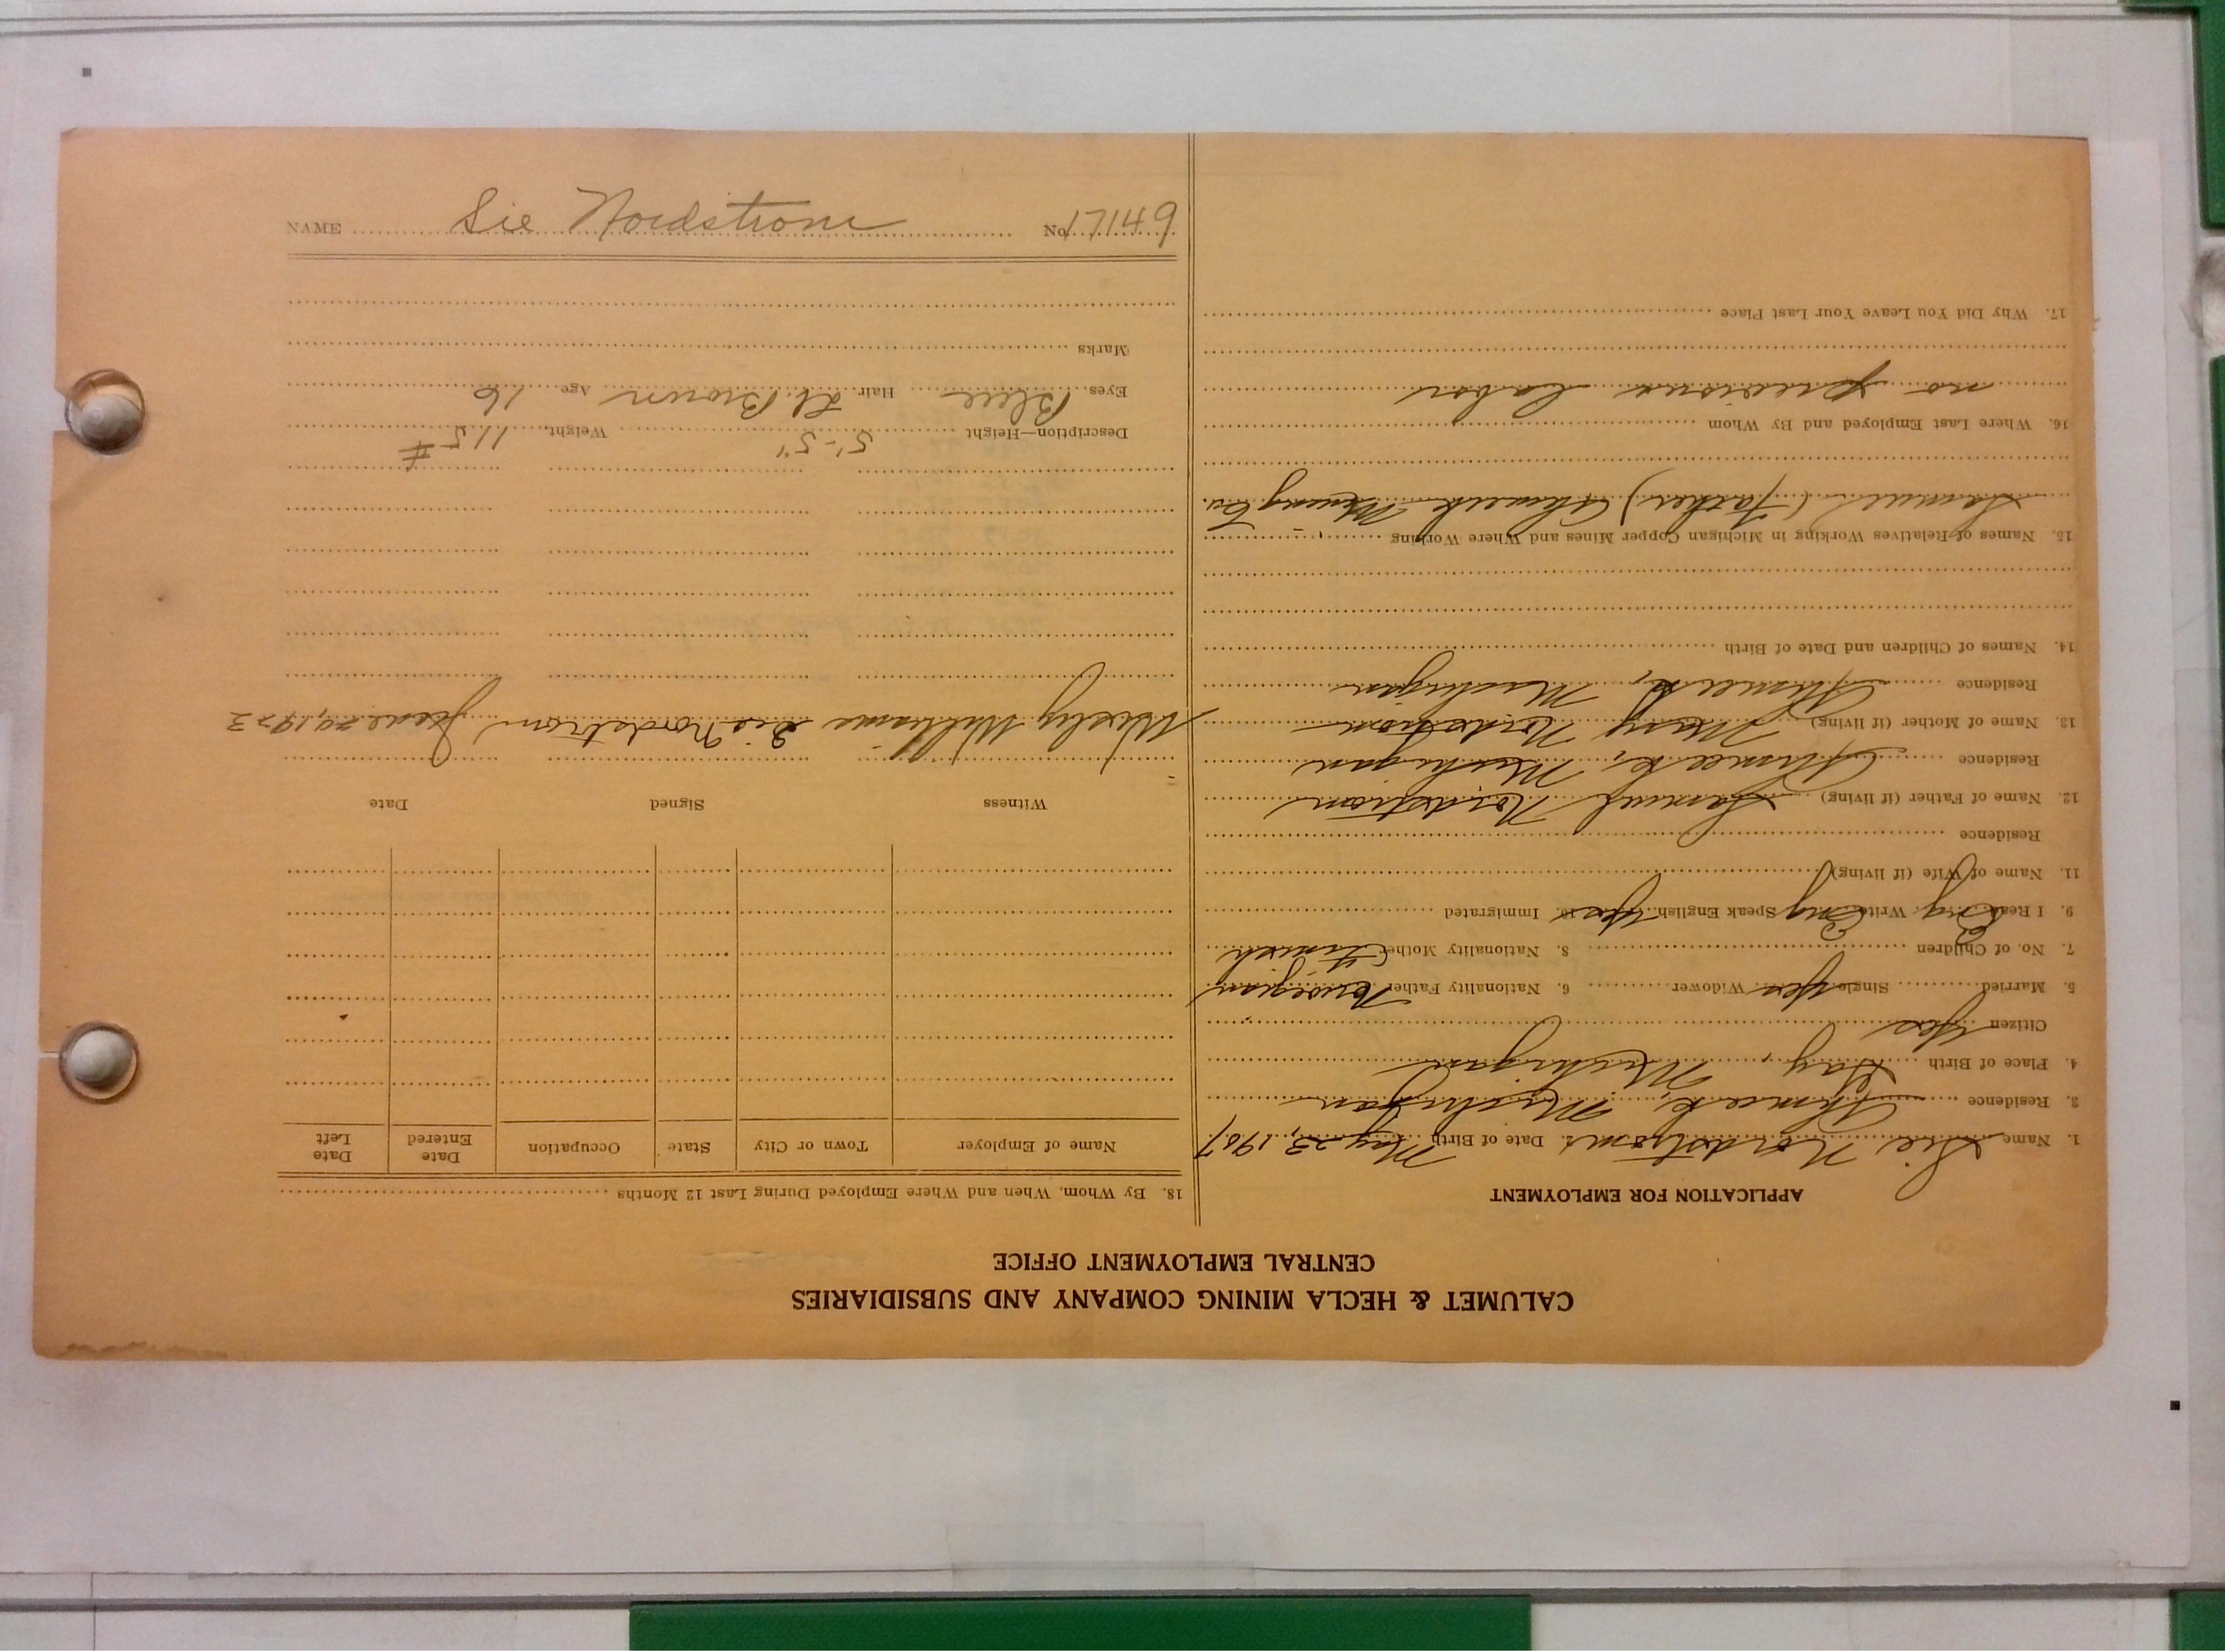 CALUMET & HECLA MINING COMPANY AND SUBSIDIARIES
CENTRAL EMPLOYMENT OFFICE
APPLICATION FOR EMPLOYMENT
1. Name Sie Nordstrom 2. Date of Birth May 23, 1907
3. Residence Ahmeek, Michigan
4. Place of Birth Gay, Michigan
Citizen Yes
5. Married Single Yes Widower 6. Nationality Father Norwegian
7. No. of Children 8. Nationality Mother Finnish
9. I Read Eng Write Eng Speak English Yes 10. Immigrated
11. Name of Wife (if living)
Residence
12. Name of Father (if living) Samuel Nordstrom
Residence Ahmeek, Michigan
13. Name of Mother (if living) Mary Nordstrom
Residence Ahmeek, Michigan
14. Names of Children and Date of Birth
15. Names of Relatives Working in Michigan Copper Mines and Where Working
Samuel (Father) Ahmeek Mining Co.
16. Where Last Employed and By Whom
no previous labor
17. Why Did You Leave Your Last Place
18. By Whom, When and Where Employed During Last 12 Months
Name of Employer Town or City State Occupation Date Entered Date Left
Witness Signed Date
Wesley Williams Sie Nordstrom June 29, 1923
Description—Height 5'-5" Weight 115 #
Eyes Blue Hair Lt. Brown Age 16
Marks
NAME Sie Nordstrom No. 17149